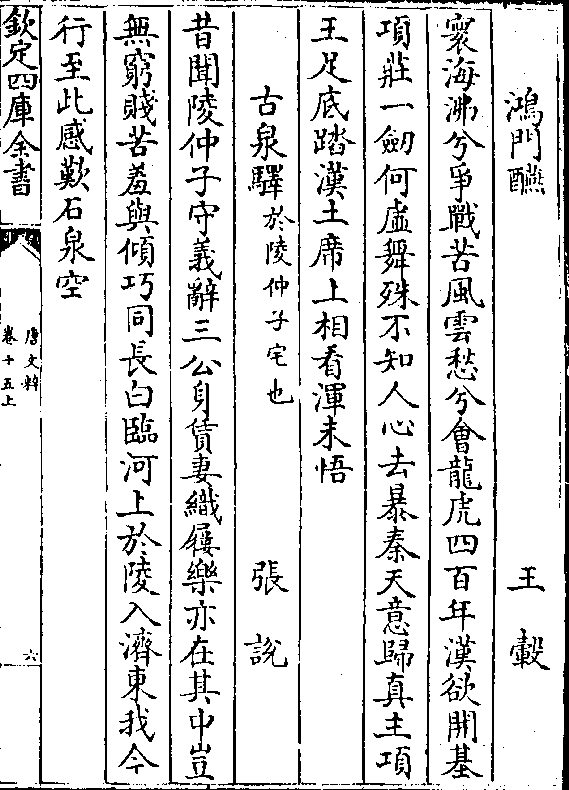 鴻門讌　王轂
寰海沸兮爭戰苦風雲愁兮會龍虎四百年漢欲開基
項莊一劒何虛舞殊不知人心去暴秦天意歸真主項
王足底踏漢土席上相看渾未悟
古泉驛於陵仲子宅也　張說
昔聞陵仲子守義辭三公身賃妻織屨樂亦在其中豈
無窮賤苦羞與傾巧同長白臨河上於陵入濟東我今
行至此感歎石泉空
欽定四庫全書
唐文粹
卷十五上
六